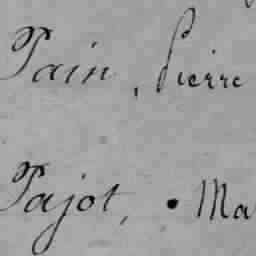 Pain, Pierre
Pajot, • Ma